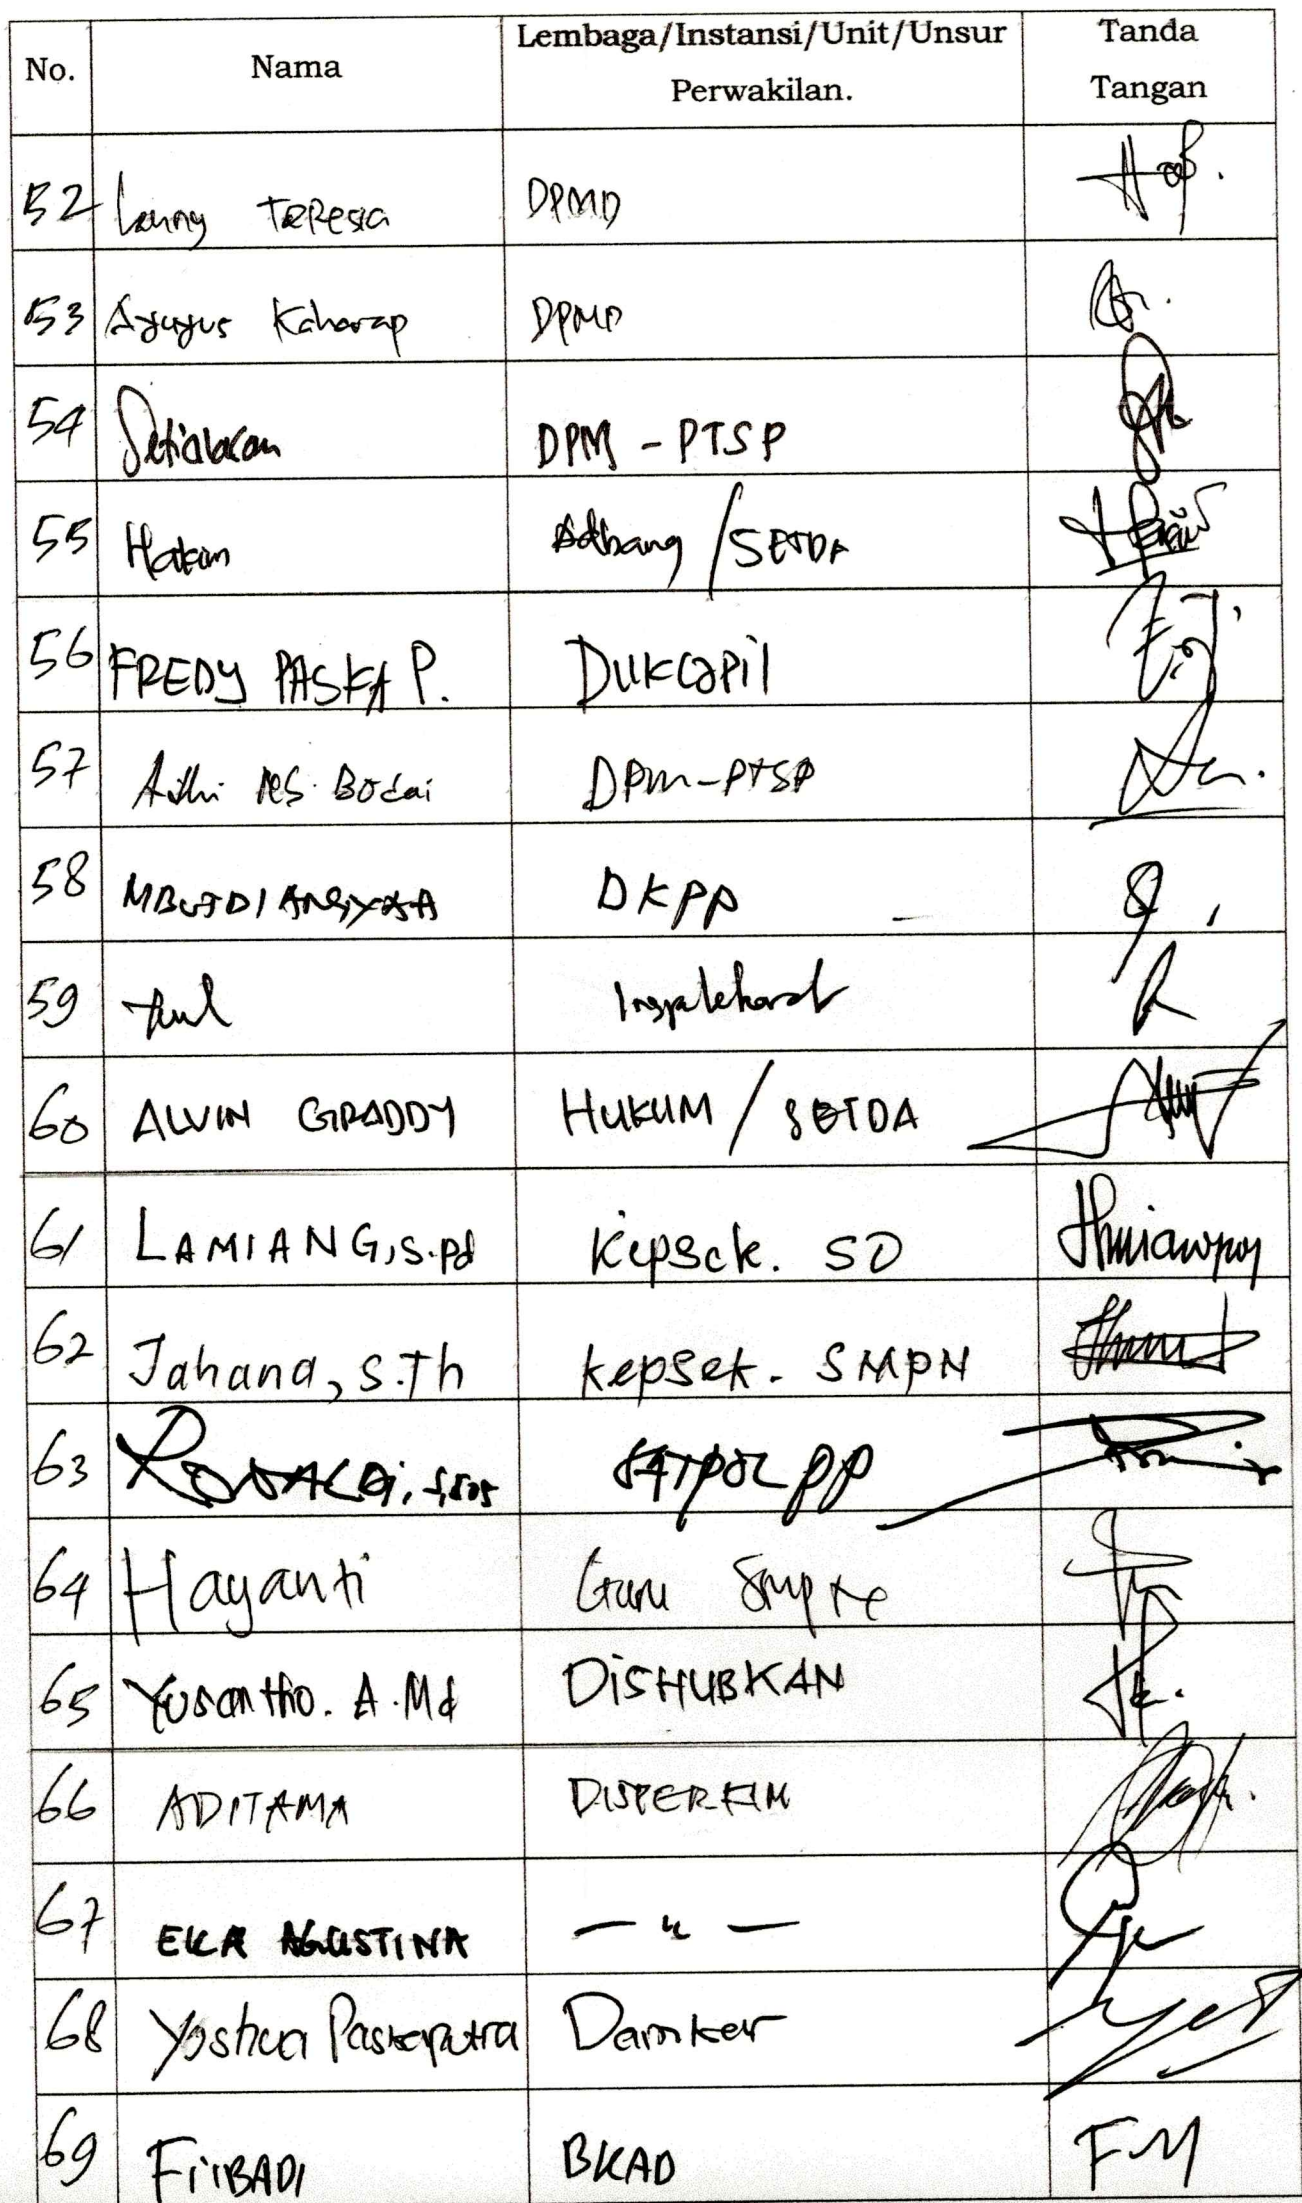 No. Nama Lembaga/Instansi/Unit/Unsur Perwakilan. Tanda Tangan
52 Lenny Teresia DPMD
53 Ayuyus Kaharap DPMD
54 DPM - PTSP
55 Hakim Adbang / SETDA
56 FREDY PASKA P. Dukcapil
57 Adhi Bodai DPM-PTSP
58 DKPP
59 Inspektorat
60 ALVIN GRADDY HUKUM / SETDA
61 LAMIANG, S.Pd Kepsek. SD
62 Jahana, S.Th kepsek. SMPN
63 SATPOL PP
64 Hayanti Guru Smp
65 Yusantho. A.Md DISHUBKAN
66 ADITAMA DISPERKIM
67 EKA AGUSTINA — " —
68 Yoshua Paskaputra Damker
69 FIIBADI BKAD FM